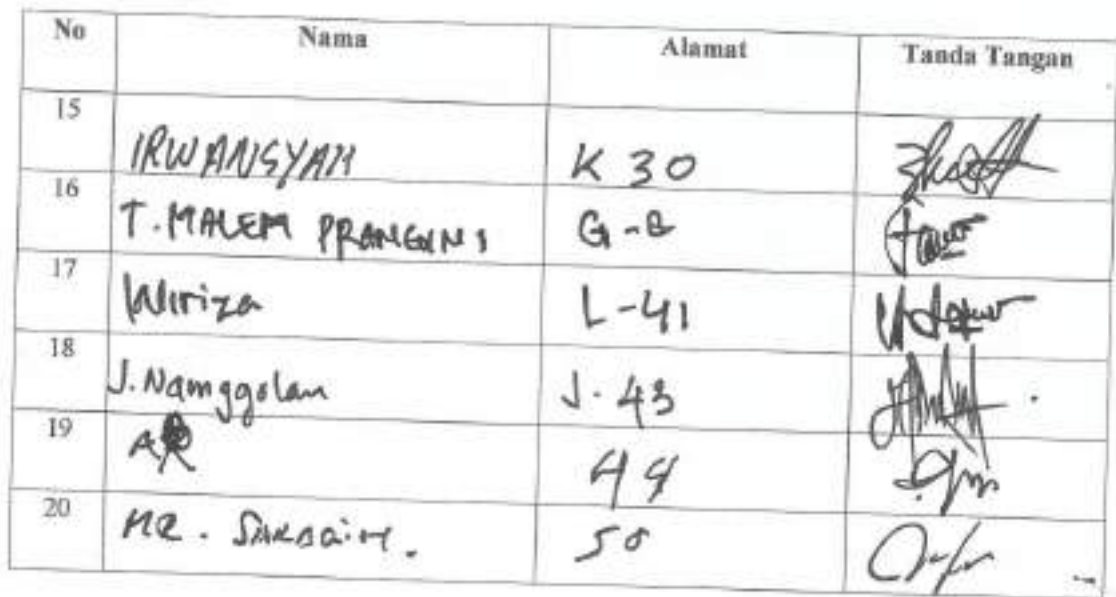 No Nama Alamat Tanda Tangan
15 IRWANSYAH K 30
16 T. MALEM G-8
17 Wiriza L-41
18 J. Namggolan J. 43
19 44
20 MR. 50